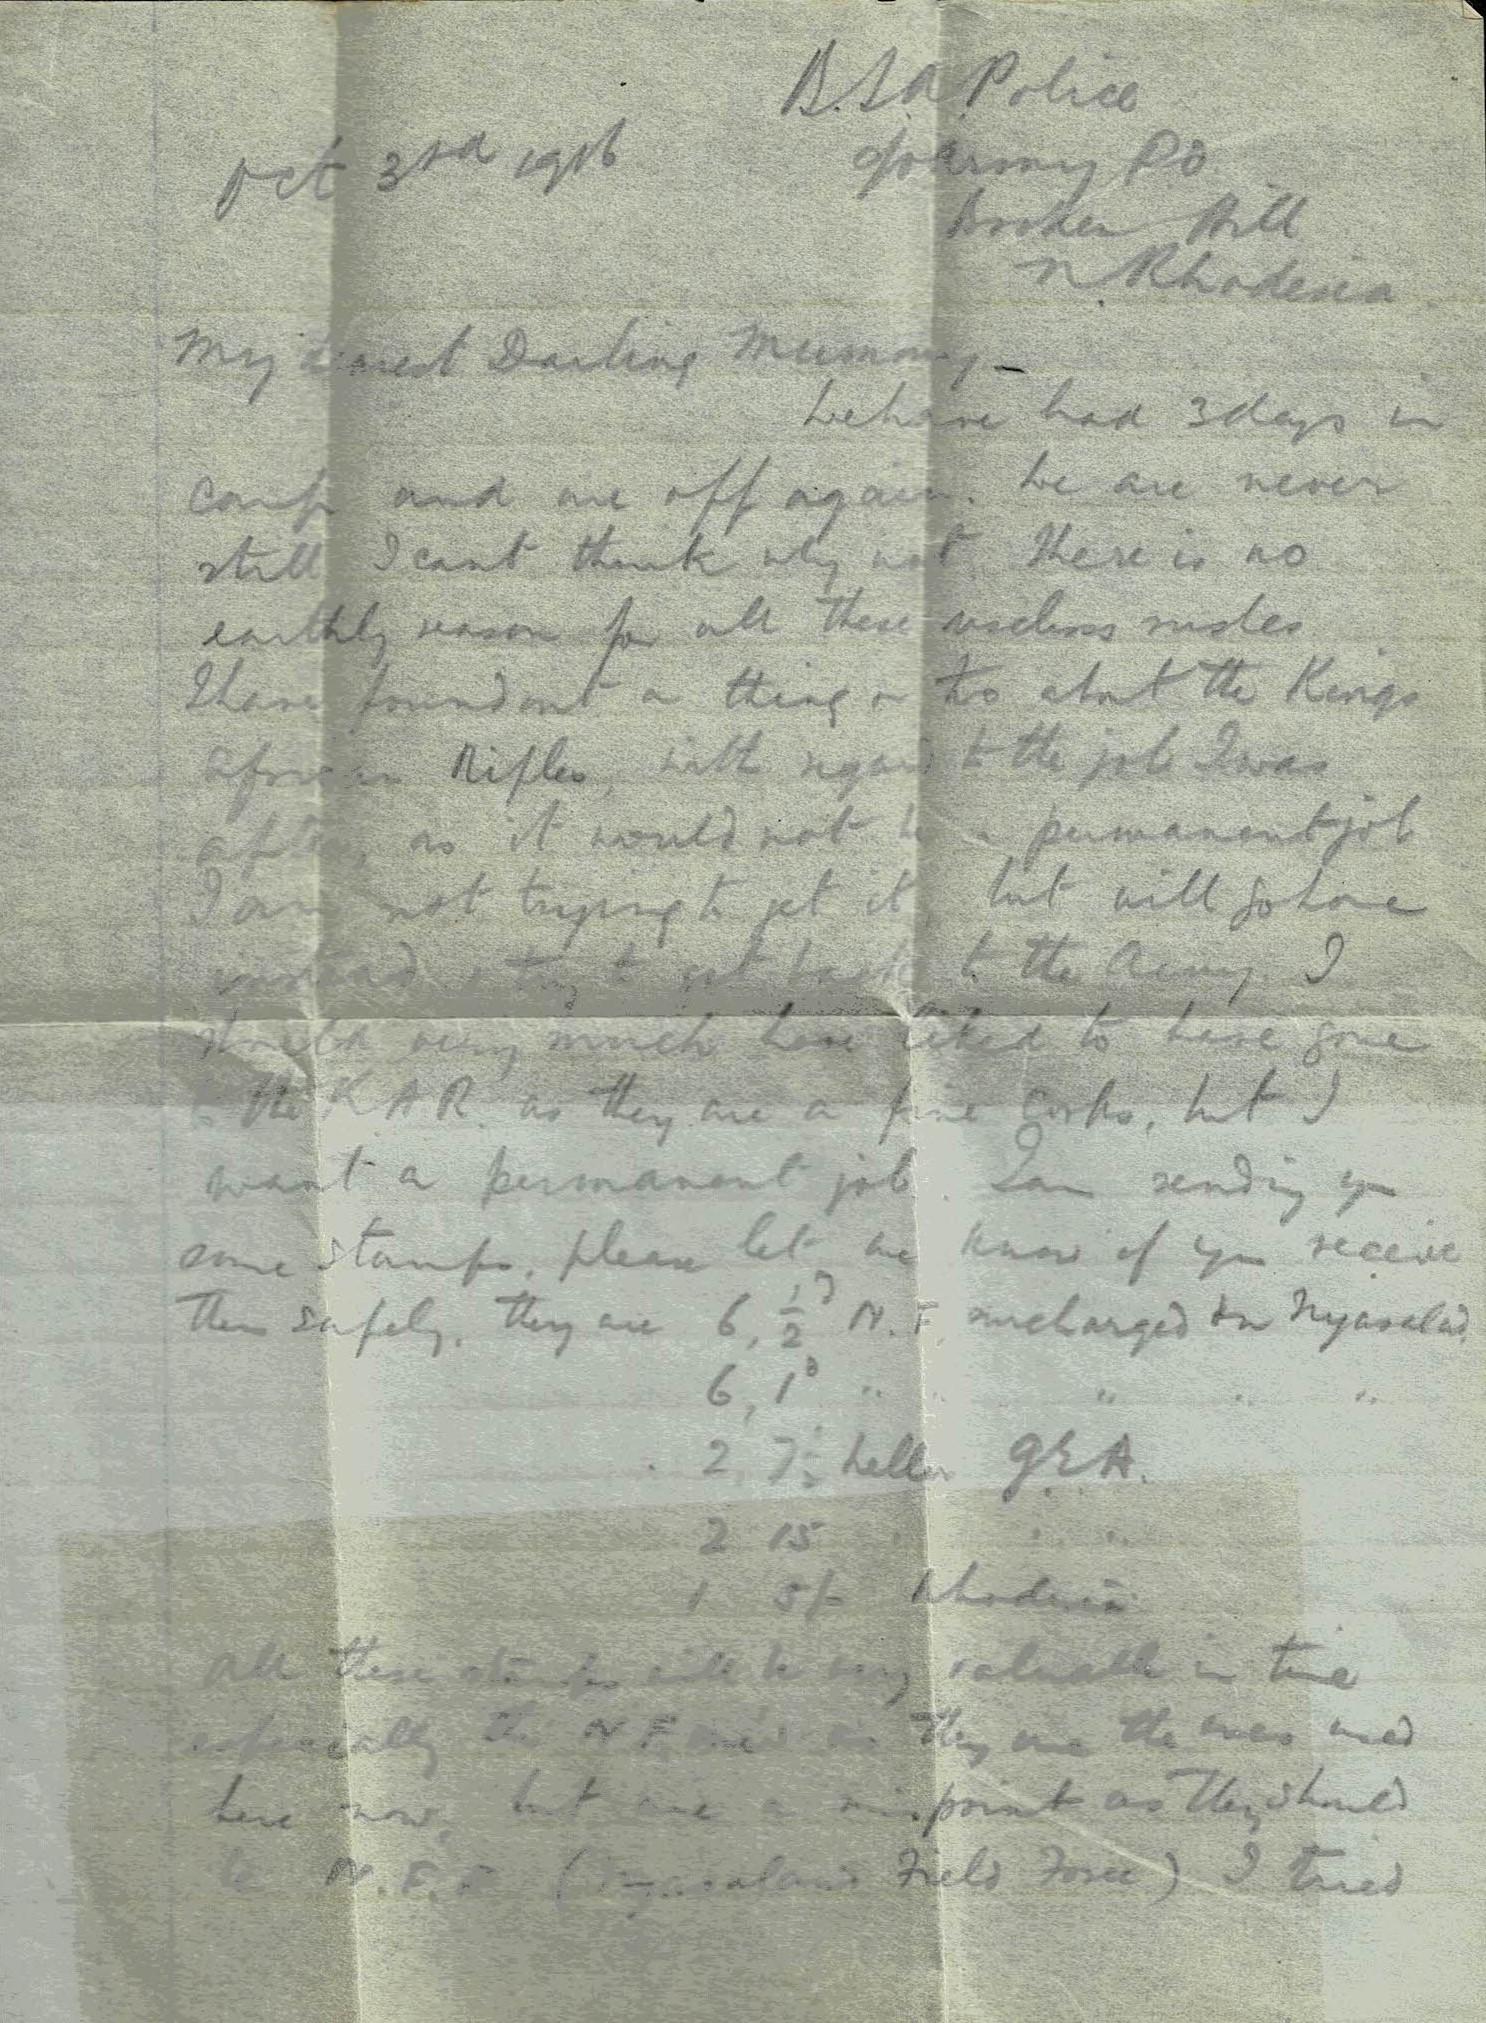 B.S.A. Police
Oct 3rd 1916
c/o Army P.O.
Broken Hill
N Rhodesia
My dearest Darling Mummy –
We have had 3 days in
camp and are off again. We are never
still I cant think why not. There is no
earthly reason for all these useless rushes
I have found out a thing or two about the Kings
African Rifles, with regard to the job I was
after, as it would not be a permanent job
I am not trying to get it, but will go home
instead & try to get back to the Army. I
should very much have liked to have gone
to the K.A.R. as they are a fine corps, but I
want a permanent job. I am sending you
some stamps, please let me know if you receive
them safely. they are 6, ½d N.F. surcharged on Nyasaland.
6, 1d " " " " "
2, 7½ heller G.E.A.
2 15 " " "
1 5/- Rhodesia
All these stamps will be very valuable in time
especially the N.F. as they are the ones used
here now, but are a misprint as they should
be N.F.F. (Nyasaland Field Force) I tried